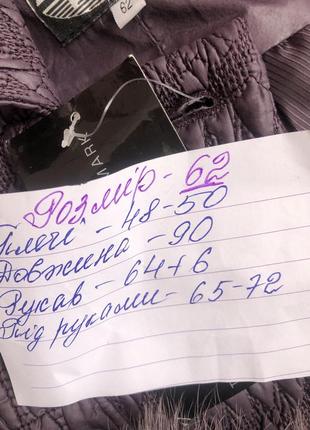 62
MARK
Розмір - 62
Плечі - 48-50
Довжина - 90
Рукав - 64+6
Під руками - 65-72